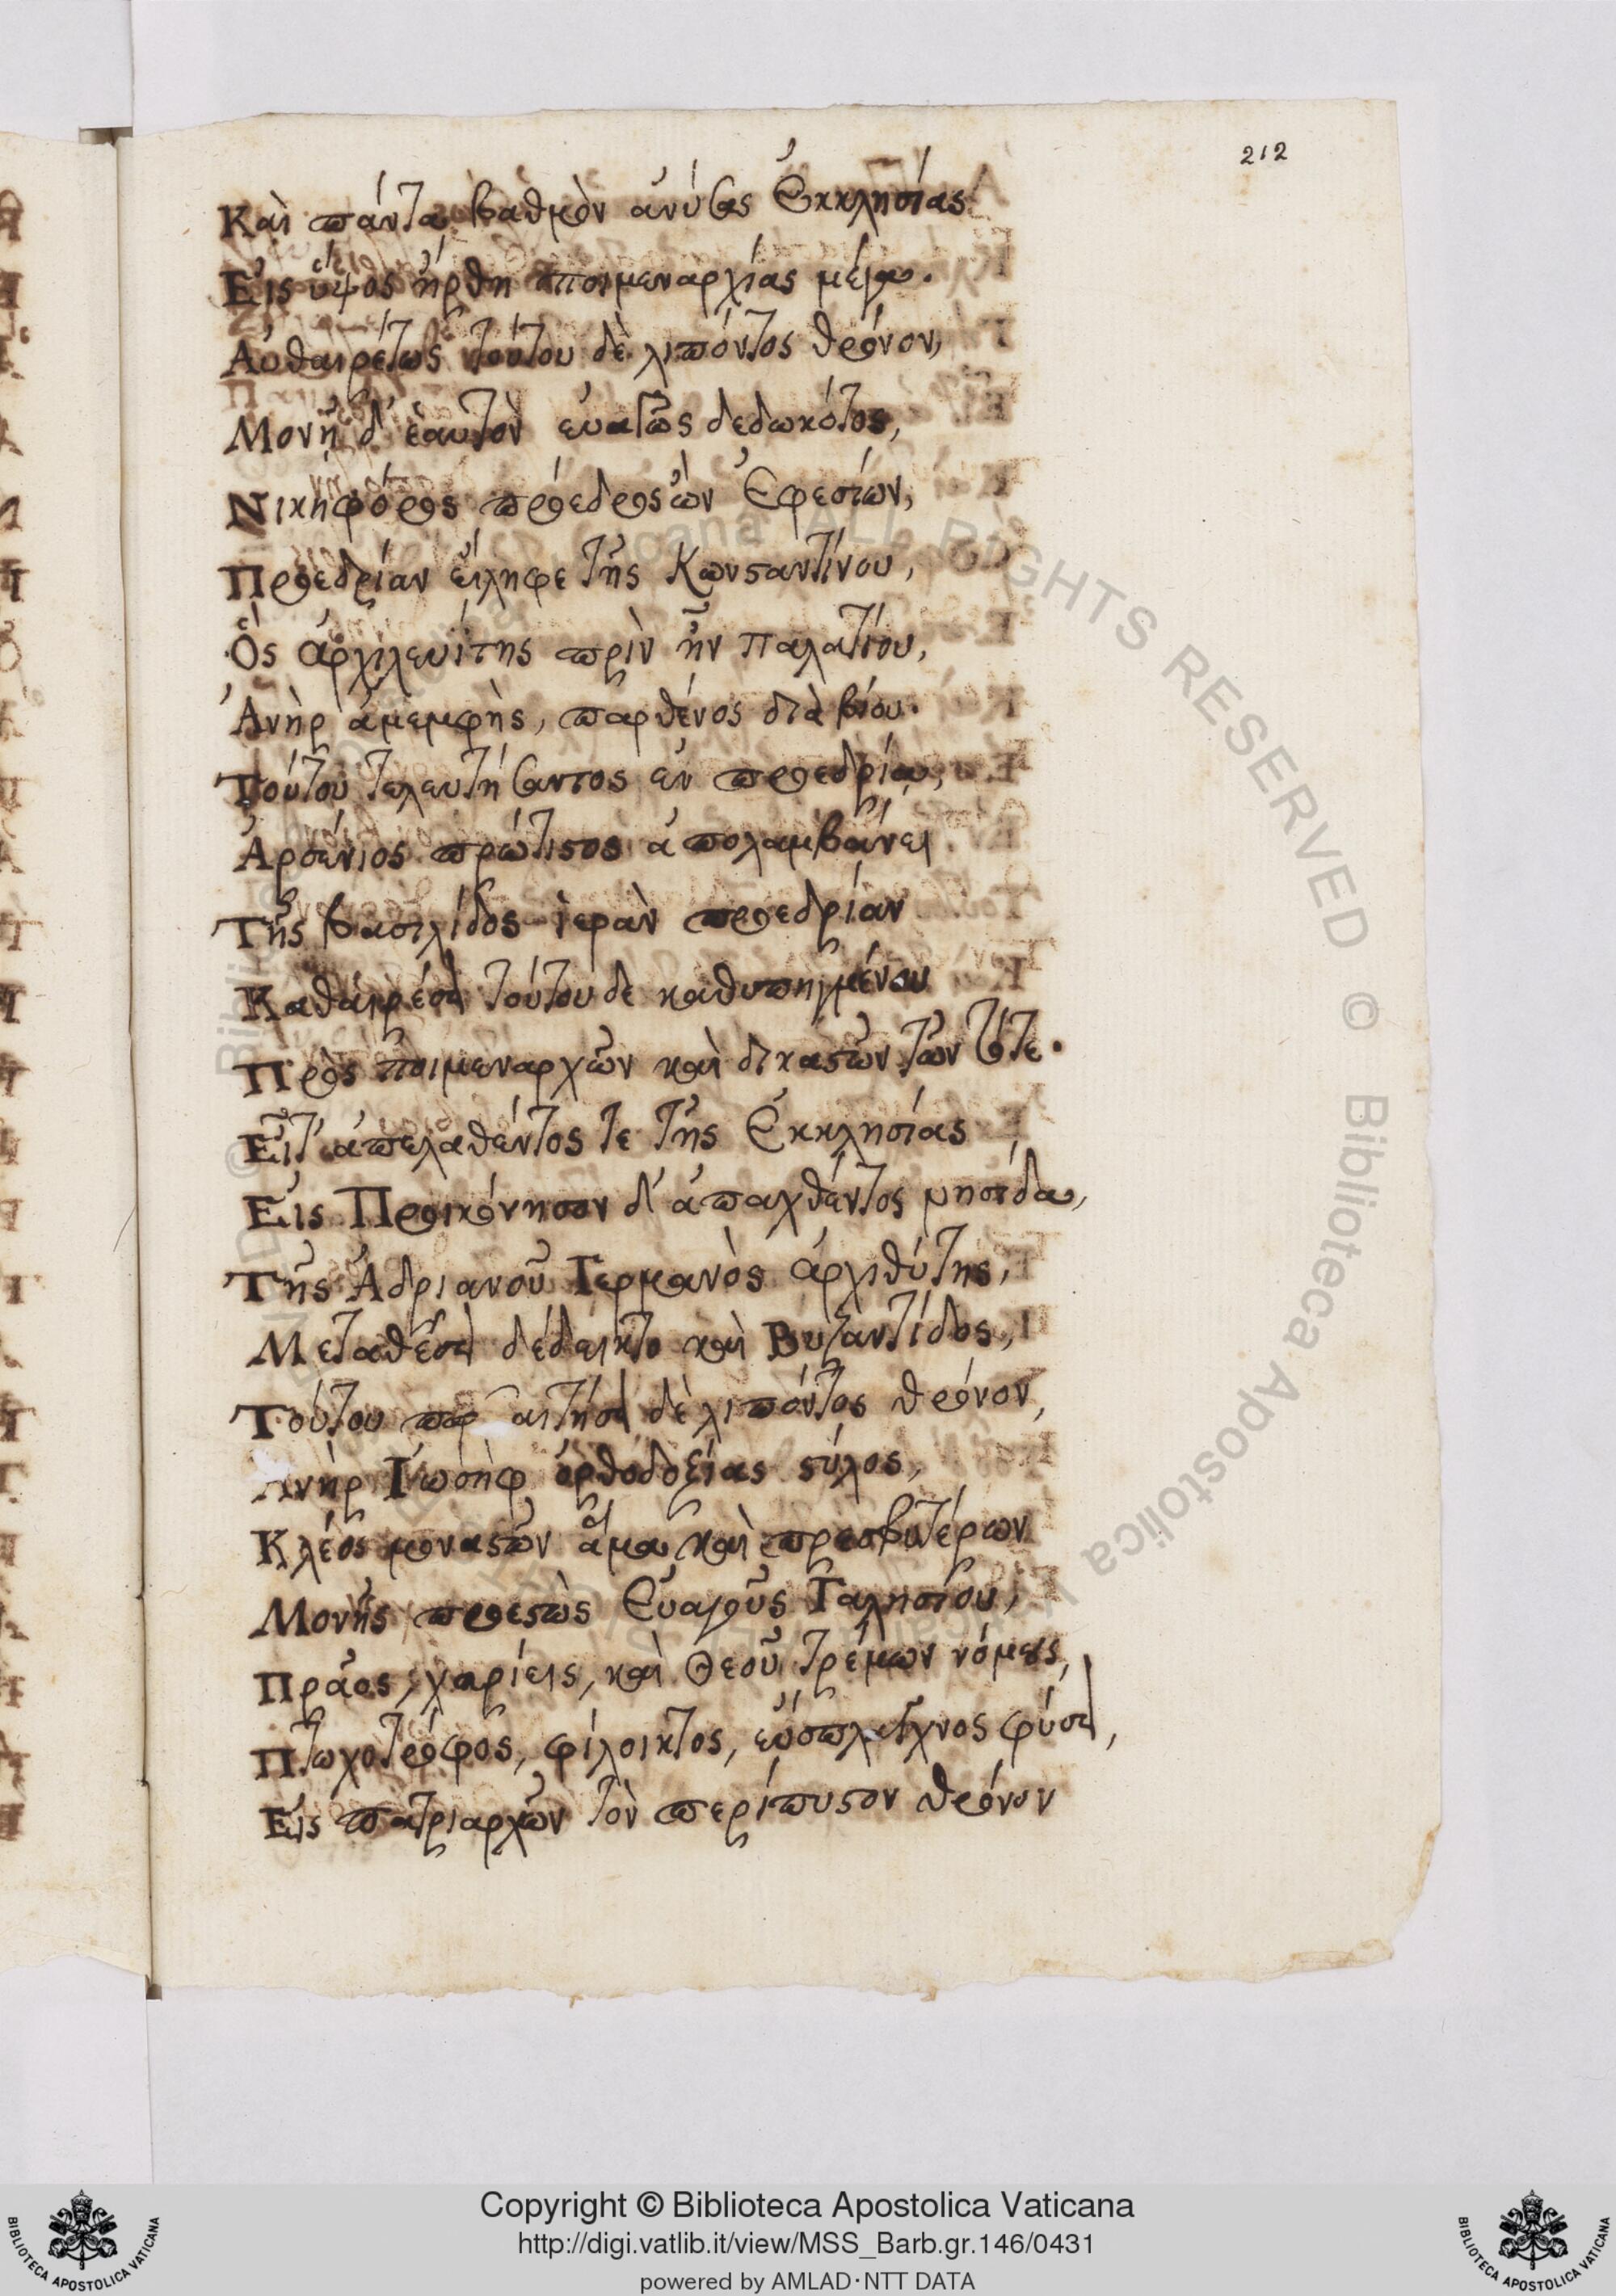 212
Καὶ πάντα βαθμὸν ἀνύσας Ἐκκλησίας
Εἰς ὕψος ἤρθη ποιμεναρχίας μέγα.
Αὐθαιρέτως τούτου δὲ λιπόντος θρόνον,
Μονῇ δ' ἑαυτὸν εὐαγῶς δεδωκότος,
Νικηφόρος πρόεδρος ὢν Ἐφεσίων,
Προεδρίαν εἴληφε τῆς Κωνσταντίνου,
Ὃς ἀρχιλευίτης πρὶν ἦν παλατίου,
Ἀνὴρ ἀμεμφὴς, παρθένος διὰ βίου.
Τούτου τελευτήσαντος ἐν προεδρίᾳ,
Ἀρσένιος πρώτιστος ἀπολαμβάνει
Τῆς βασιλίδος ἱερὰν προεδρίαν
Καθαιρέσει τούτου δὲ καθυπηγμένου
Πρὸς ποιμεναρχῶν καὶ δικαστῶν τῶν τότε.
Εἶτ' ἀπελαθέντος τε τῆς Ἐκκλησίας
Εἰς Προικόνησον δ' ἀπαχθέντος νησίδα,
Τῆς Ἀδριανοῦ Γερμανὸς ἀρχιθύτης,
Μεταθέσει δέδεικτο καὶ Βυζαντίδος,
Τούτου παραιτήσει δὲ λιπόντος θρόνον,
Ἀνὴρ Ἰωσὴφ ὀρθοδοξίας στύλος,
Κλέος μοναστῶν ἅμα καὶ πρεσβυτέρων
Μονῆς προεστὼς Εὐαγοῦς Γαλησίου,
Πρᾶος, χαρίεις, καὶ Θεοῦ τρέμων νόμους,
Πτωχοτρόφος, φίλοικτος, εὔσπλαγχνος φύσει,
Εἰς πατριαρχῶν τὸν περίπυστον θρόνον
Copyright © Biblioteca Apostolica Vaticana
http://digi.vatlib.it/view/MSS_Barb.gr.146/0431
powered by AMLAD·NTT DATA